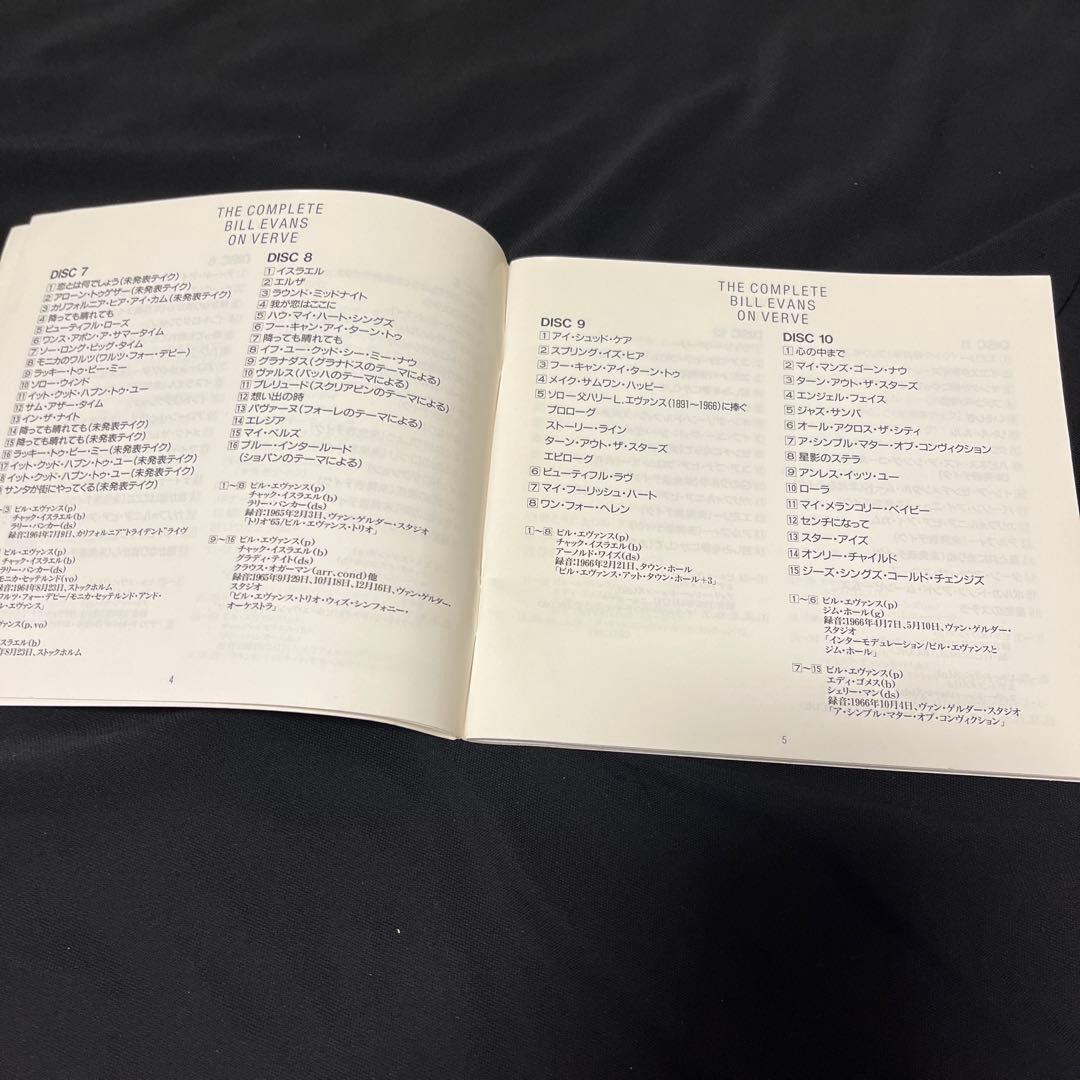 THE COMPLETE
BILL EVANS
ON VERVE
DISC 7
1 恋とは何でしょう(未発表テイク)
2 アローン・トゥゲザー(未発表テイク)
3 カリフォルニア・ヒア・アイ・カム(未発表テイク)
4 降っても晴れても
5 ビューティフル・ローズ
6 ワンス・アポン・ア・サマータイム
7 ソー・ロング・ビッグ・タイム
8 モニカのワルツ(ワルツ・フォー・デビー)
9 ラッキー・トゥ・ビー・ミー
10 ソロー・ウィンド
11 イット・クッド・ハプン・トゥ・ユー
12 サム・アザー・タイム
13 イン・ザ・ナイト
14 降っても晴れても(未発表テイク)
15 降っても晴れても(未発表テイク)
16 ラッキー・トゥ・ビー・ミー(未発表テイク)
17 イット・クッド・ハプン・トゥ・ユー(未発表テイク)
8 イット・クッド・ハプン・トゥ・ユー(未発表テイク)
サンタが街にやってくる(未発表テイク)
~3 ビル・エヴァンス(p)
チャック・イスラエル(b)
ラリー・バンカー(ds)
録音:1964年7月9日、カリフォルニア"トライデント"ライヴ
ビル・エヴァンス(p)
チャック・イスラエル(b)
ラリー・バンカー(ds)
モニカ・セッテルンド(vo)
録音:1964年8月23日、ストックホルム
ワルツ・フォー・デビー/モニカ・セッテルンド・アンド・
ル・エヴァンス」
ヴァンス(p,vo)
スラエル(b)
年8月23日、ストックホルム
4
DISC 8
1 イスラエル
2 エルザ
3 ラウンド・ミッドナイト
4 我が恋はここに
5 ハウ・マイ・ハート・シングズ
6 フー・キャン・アイ・ターン・トゥ
7 降っても晴れても
8 イフ・ユー・クッド・シー・ミー・ナウ
9 グラナダス(グラナドスのテーマによる)
10 ヴァルス(バッハのテーマによる)
11 プレリュード(スクリアビンのテーマによる)
12 想い出の時
13 パヴァーヌ(フォーレのテーマによる)
14 エレジア
15 マイ・ベルズ
16 ブルー・インタールード
(ショパンのテーマによる)
1~8 ビル・エヴァンス(p)
チャック・イスラエル(b)
ラリー・バンカー(ds)
録音:1965年2月3日、ヴァン・ゲルダー・スタジオ
「トリオ'65/ビル・エヴァンス・トリオ」
9~16 ビル・エヴァンス(p)
チャック・イスラエル(b)
グラディ・テイト(ds)
クラウス・オガーマン(arr,cond)他
録音:1965年9月29日、10月18日、12月16日、ヴァン・ゲルダー・
スタジオ
「ビル・エヴァンス・トリオ・ウィズ・シンフォニー・
オーケストラ」
THE COMPLETE
BILL EVANS
ON VERVE
DISC 9
1 アイ・シュッド・ケア
2 スプリング・イズ・ヒア
3 フー・キャン・アイ・ターン・トゥ
4 メイク・サムワン・ハッピー
5 ソロ-父ハリーL.エヴァンス(1891~1966)に捧ぐ
プロローグ
ストーリー・ライン
ターン・アウト・ザ・スターズ
エピローグ
6 ビューティフル・ラヴ
7 マイ・フーリッシュ・ハート
8 ワン・フォー・ヘレン
1~8 ビル・エヴァンス(p)
チャック・イスラエル(b)
アーノルド・ワイズ(ds)
録音:1966年2月21日、タウン・ホール
「ビル・エヴァンス・アット・タウン・ホール+3」
DISC 10
1 心の中まで
2 マイ・マンズ・ゴーン・ナウ
3 ターン・アウト・ザ・スターズ
4 エンジェル・フェイス
5 ジャズ・サンバ
6 オール・アクロス・ザ・シティ
7 ア・シンプル・マター・オブ・コンヴィクション
8 星影のステラ
9 アンレス・イッツ・ユー
10 ローラ
11 マイ・メランコリー・ベイビー
12 センチになって
13 スター・アイズ
14 オンリー・チャイルド
15 ジーズ・シングズ・コールド・チェンジズ
1~6 ビル・エヴァンス(p)
ジム・ホール(g)
録音:1966年4月7日、5月10日、ヴァン・ゲルダー・
スタジオ
「インターモデュレーション/ビル・エヴァンスと
ジム・ホール」
7~15 ビル・エヴァンス(p)
エディ・ゴメス(b)
シェリー・マン(ds)
録音:1966年10月4日、ヴァン・ゲルダー・スタジオ
「ア・シンプル・マター・オブ・コンヴィクション」
5